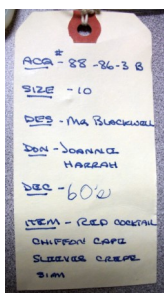 #
ACQ - 88-86-3 B
SIZE - 10
DES - Mr Blackwell
DON - JOANNE
HARRAH
DEC - 60's
ITEM - RED COCKTAIL
CHIFFON CAPE
SLEEVES CREPE